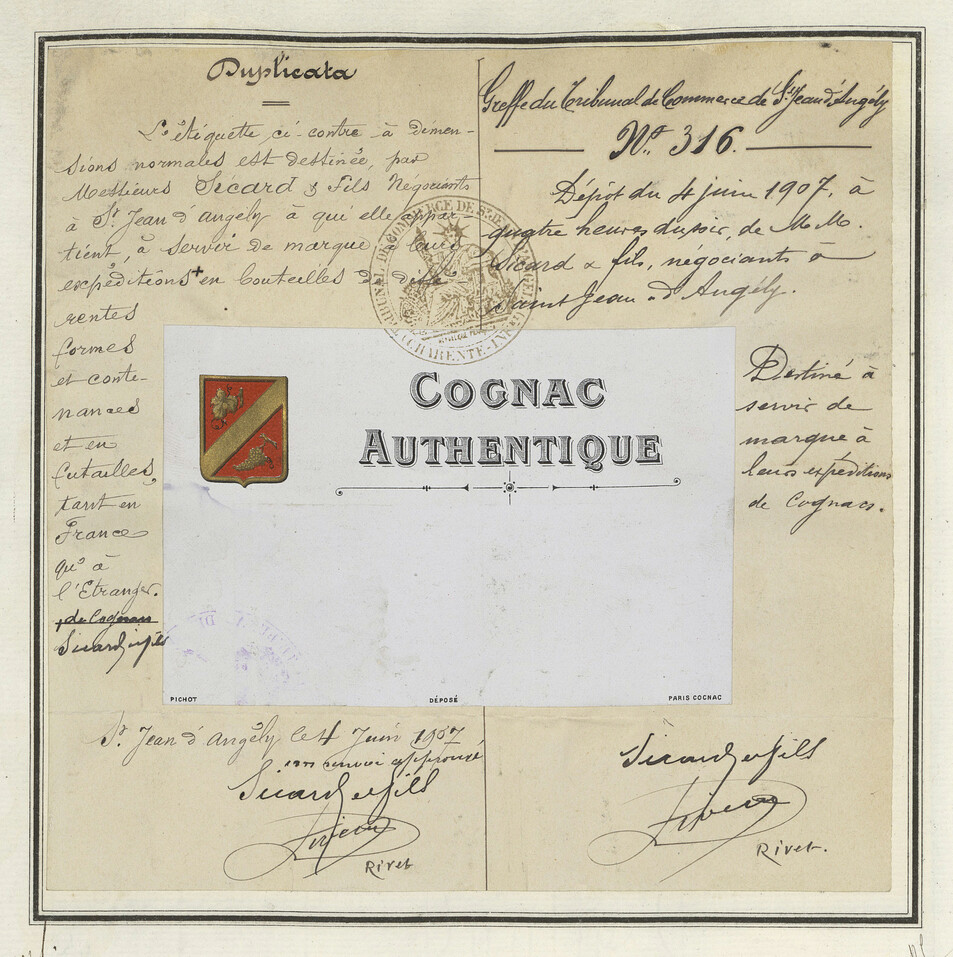 Duplicata
L'étiquette ci-contre à dimen-
sions normales est destinée, par
Messieurs Sicard & Fils Négociants
à St Jean d'angely à qui elle appar-
tient, à servir de marque à leurs
expéditions + en bouteilles de diffé-
rentes
formes
et conte-
nances
et en
futailles,
tant en
France
qu'à
l'Etranger.
+ de Cognacs
Sicard et fils
St Jean d'Angély le 4 Juin 1907
un renvoi approuvé
Sicard et fils
Rivet
Greffe du Tribunal de Commerce de St Jean d'Angély
No. 316.
Dépôt du 4 juin 1907, à
quatre heures du soir, de M.M.
Sicard & fils, négociants à
Saint Jean d'Angély.
Destiné à
servir de
marque à
leurs expéditions
de Cognacs.
Sicard et fils
Rivet.
TRIBUNAL DE COMMERCE DE ST JEAN D'ANGELY
(CHARENTE-INFRE)
COGNAC
AUTHENTIQUE
PICHOT
DÉPOSÉ
PARIS COGNAC